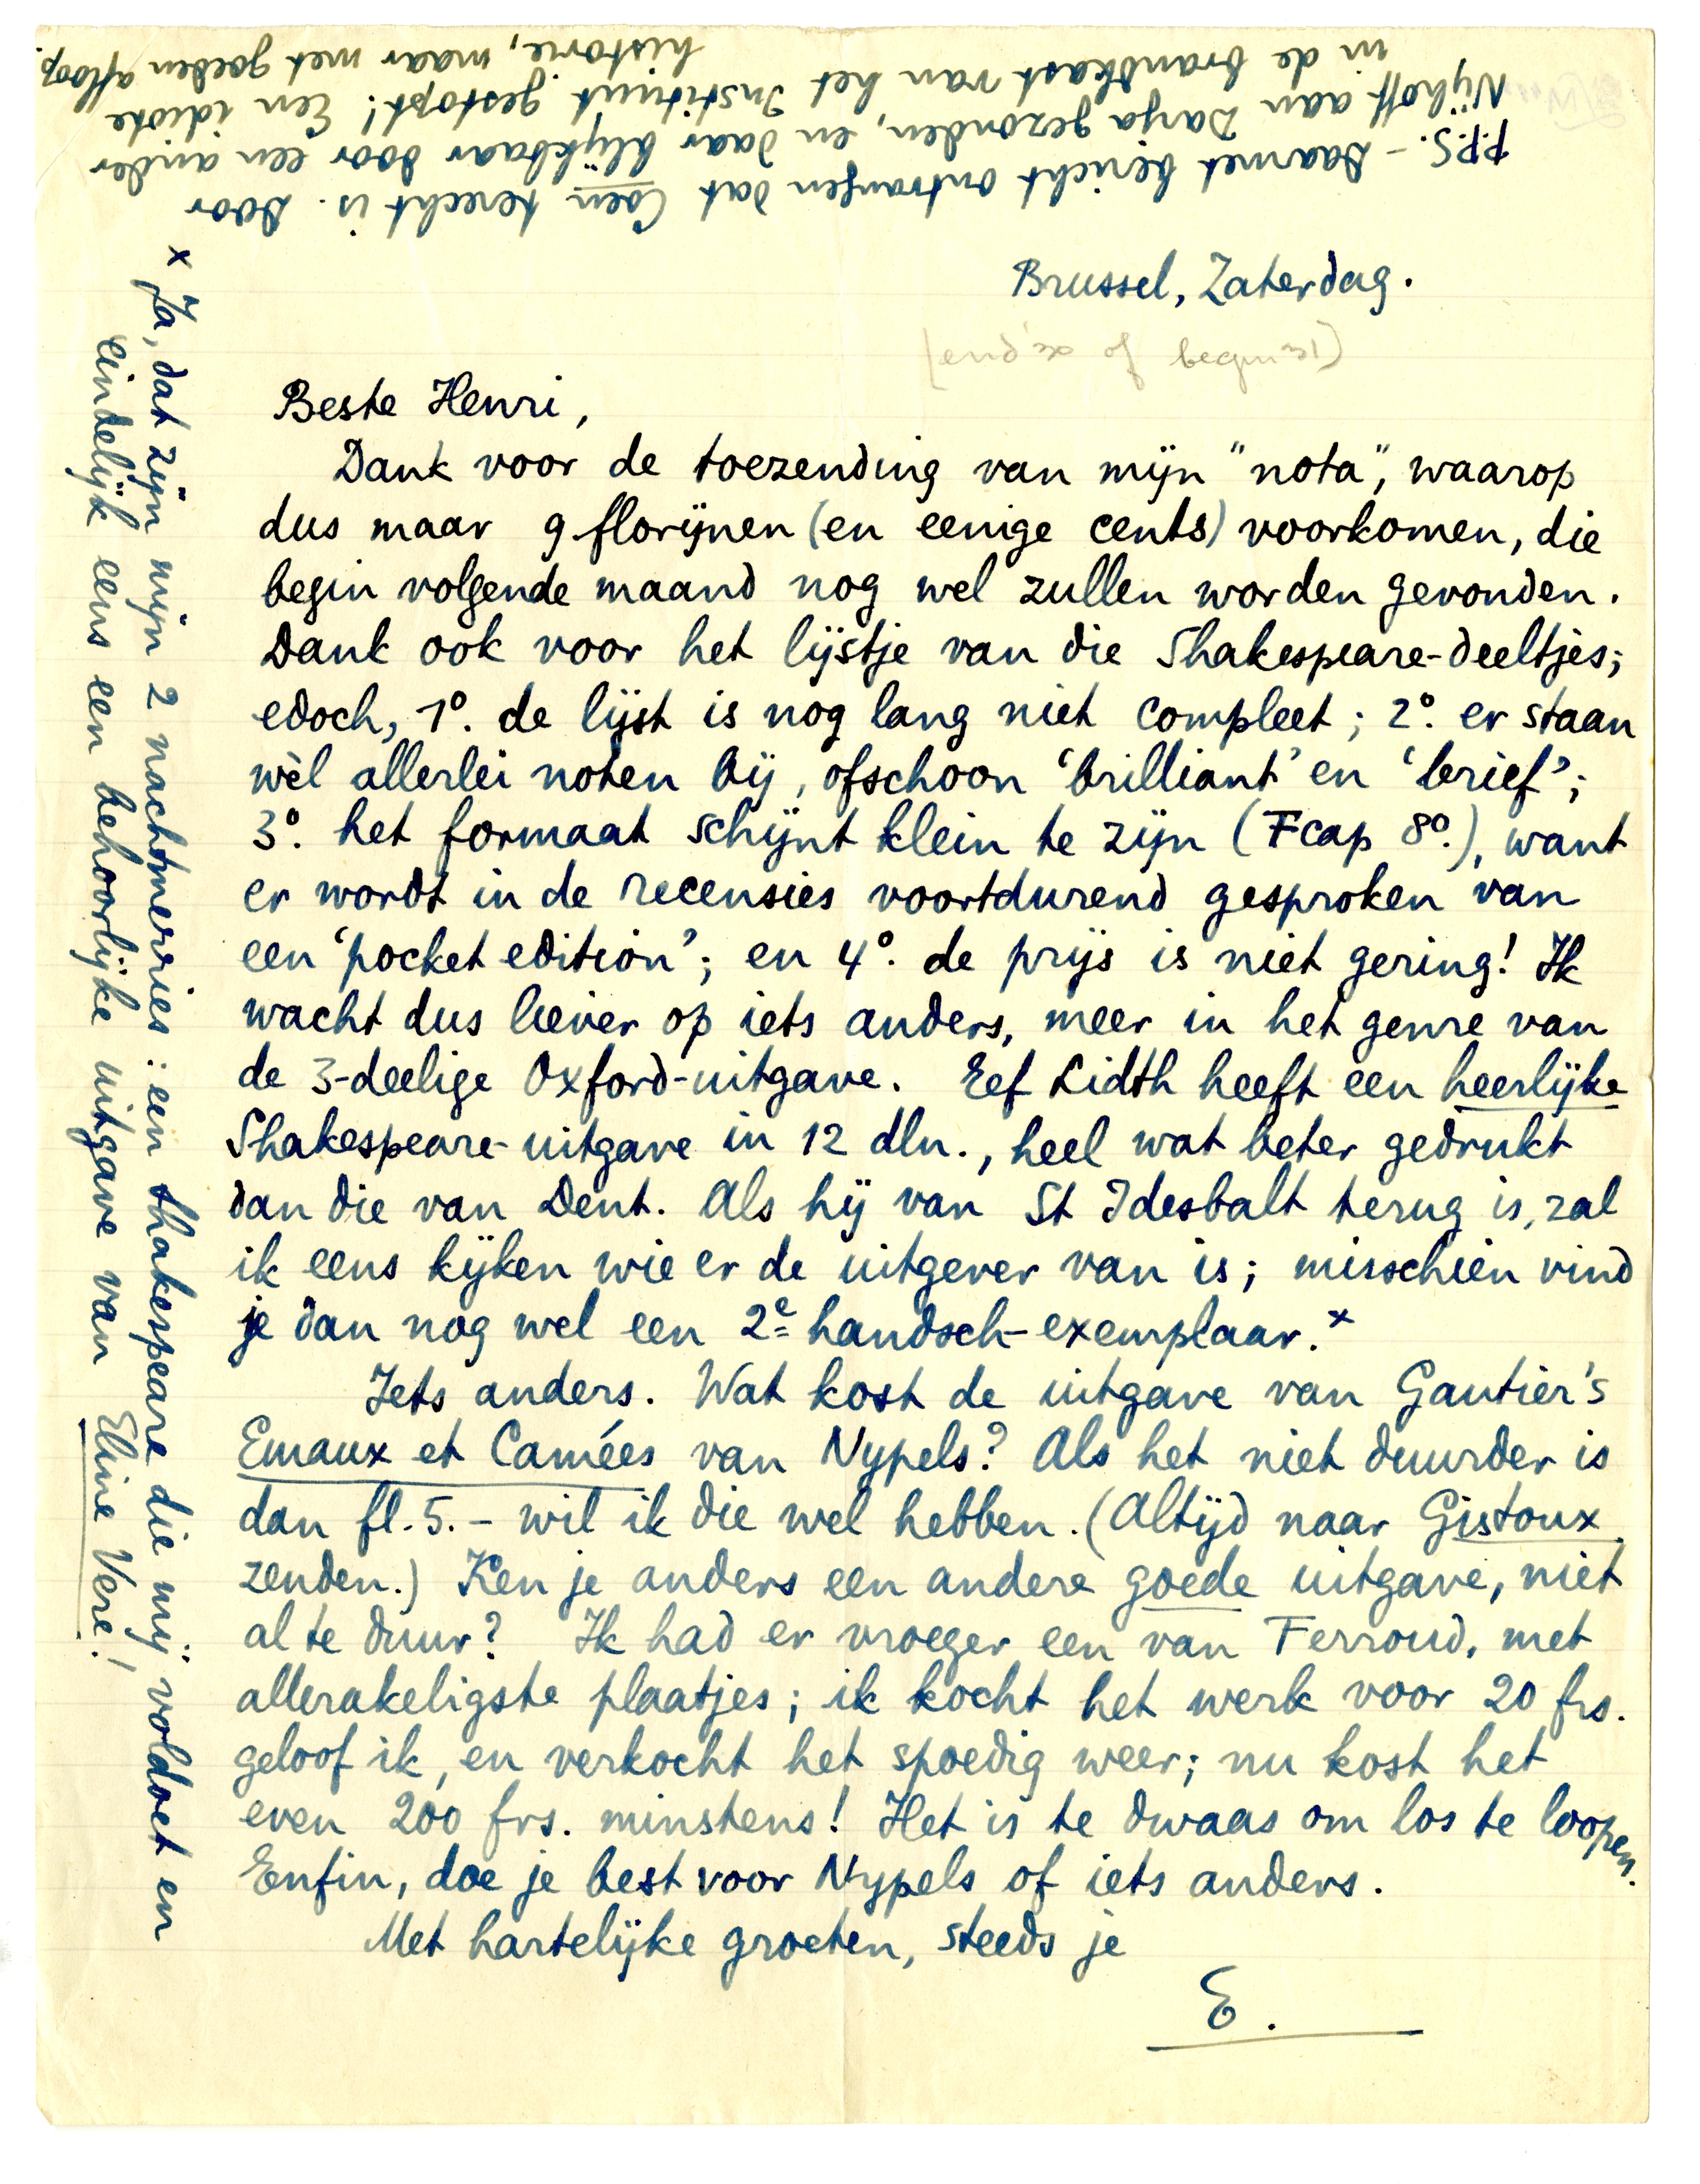 Brussel, Zaterdag.
Beste Henri,
Dank voor de toezending van mijn "nota", waarop
dus maar 9 florijnen (en eenige cents) voorkomen, die
begin volgende maand nog wel zullen worden gevonden.
Dank ook voor het lijstje van die Shakespeare-deeltjes;
edoch, 1º. de lijst is nog lang niet compleet; 2º. er staan
wèl allerlei noten bij, ofschoon 'brilliant' en 'brief';
3º. het formaat schijnt klein te zijn (Fcap 8º.), want
er wordt in de recensies voortdurend gesproken van
een 'pocket edition'; en 4º. de prijs is niet gering! Ik
wacht dus liever op iets anders, meer in het genre van
de 3-deelige Oxford-uitgave. Eef Lidth heeft een heerlijke
Shakespeare-uitgave in 12 dln., heel wat beter gedrukt
dan die van Dent. Als hij van St Idesbalt terug is, zal
ik eens kijken wie er de uitgever van is; misschien vind
je dan nog wel een 2e handsch-exemplaar.x
Iets anders. Wat kost de uitgave van Gautier's
Emaux et Camées van Nypels? Als het niet duurder is
dan fl. 5.- wil ik die wel hebben. (Altijd naar Gistoux
zenden.) Ken je anders een andere goede uitgave, niet
al te duur? Ik had er vroeger een van Ferroud, met
allerakeligste plaatjes; ik kocht het werk voor 20 frs.
geloof ik, en verkocht het spoedig weer; nu kost het
even 200 frs. minstens! Het is te dwaas om los te loopen.
Enfin, doe je best voor Nypels of iets anders.
Met hartelijke groeten, steeds je
E.
x Ja, dat zijn mijn 2 nachtmerries: een Shakespeare die mij voldoet en
eindelijk eens een behoorlijke uitgave van Eline Vere!
P.P.S. - Daarnet bericht ontvangen dat Coen terecht is. Door
Nijhoff aan Darja gezonden, en daar blijkbaar door een ander
in de brandkast van het Instituut gestopt! Een idiote
historie, maar met goeden afloop.